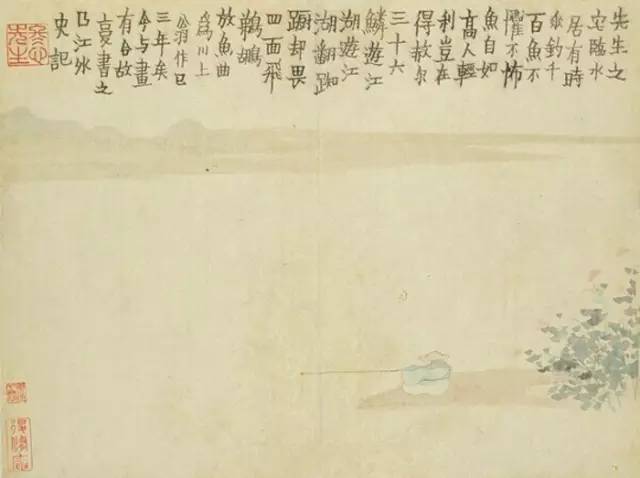 先生之
宅臨水
居有時
垂釣千
百魚不
懼不怖
魚自如
高人輕
利豈在
得赦尔
三十六
鱗遊江
湖遊江
湖翻踟
蹰却畏
四面飛
鵜鶘
放魚曲
為川上
翁作已
三年矣
今与畫
有合故
書之
江外
史記
冬心先生